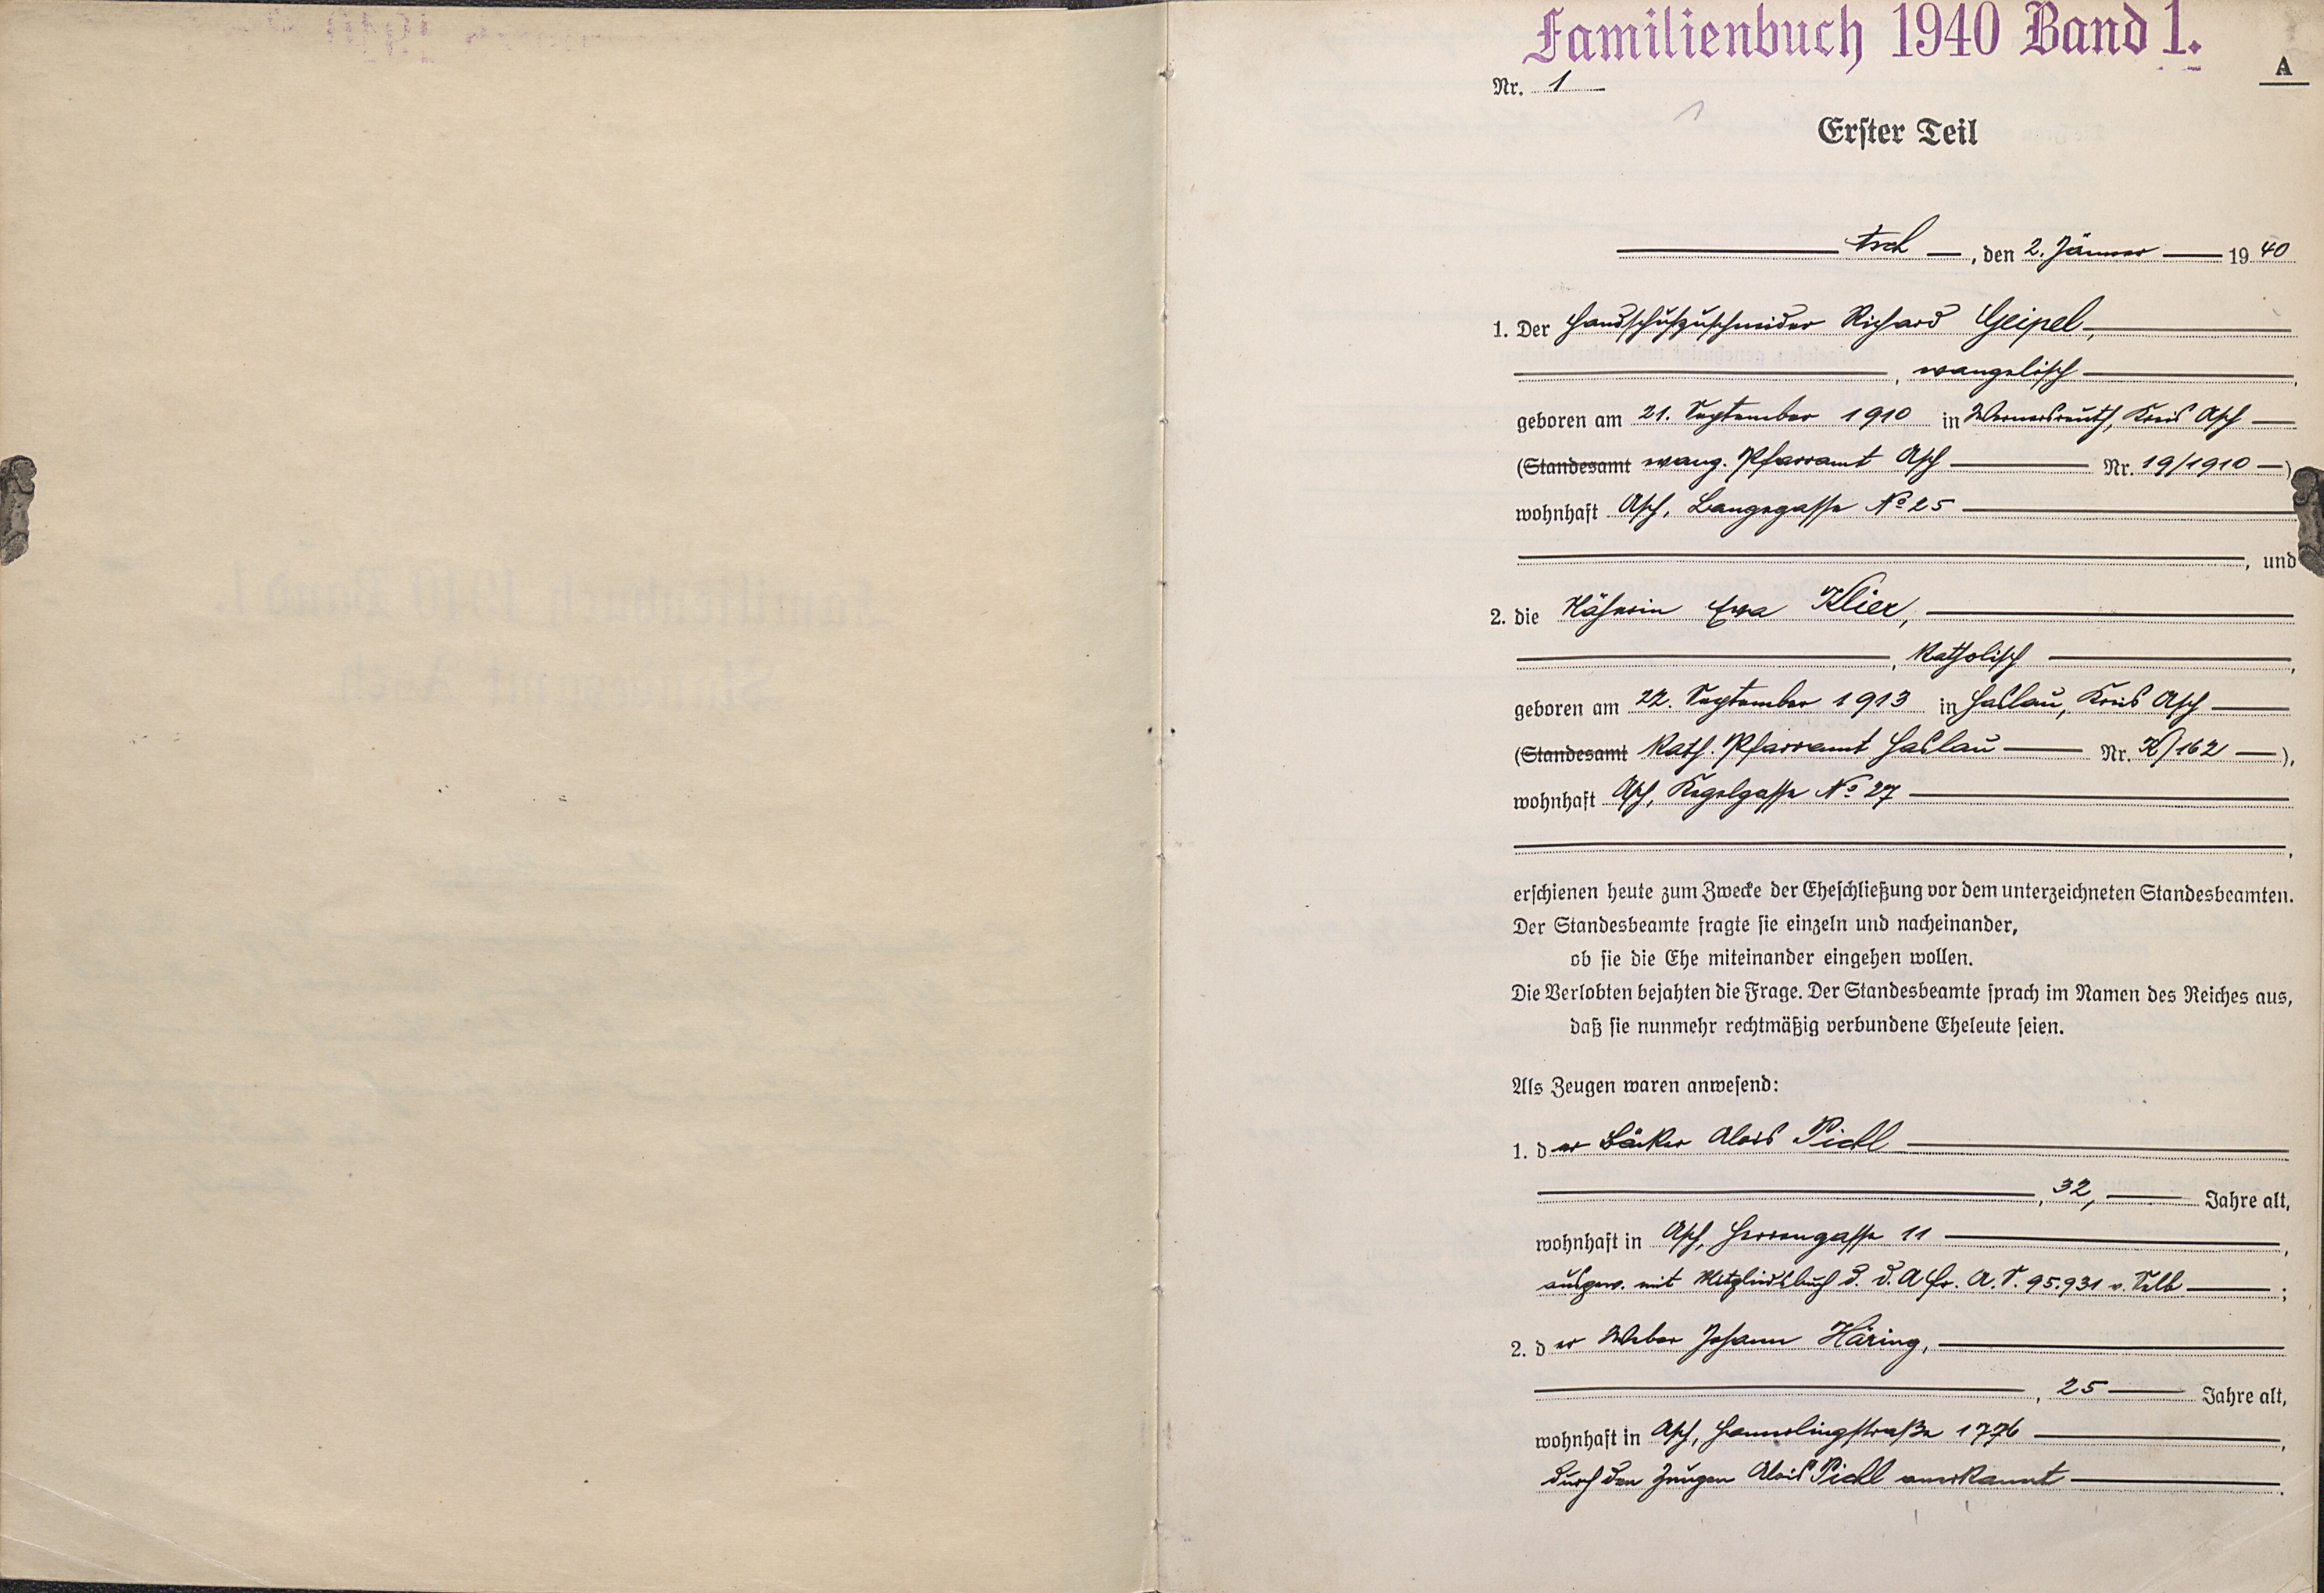 Familienbuch 1940 Band 1.
A
Nr. 1
1
Erster Teil
Asch, den 2. Jänner 1940
1. Der Handschuhzuschneider Richard Geipel,
, evangelisch,
geboren am 21. September 1910 in Wernersreuth, Kreis Asch
(Standesamt evang. Pfarramt Asch Nr. 19/1910)
wohnhaft Asch, Langegasse No 25
, und
2. die Näherin Eva Klier,
, katholisch,
geboren am 22. September 1913 in Haslau, Kreis Asch
(Standesamt kath. Pfarramt Haslau Nr. X/162),
wohnhaft Asch, Kegelgasse No 27
,
erschienen heute zum Zwecke der Eheschließung vor dem unterzeichneten Standesbeamten.
Der Standesbeamte fragte sie einzeln und nacheinander,
ob sie die Ehe miteinander eingehen wollen.
Die Verlobten bejahten die Frage. Der Standesbeamte sprach im Namen des Reiches aus,
daß sie nunmehr rechtmäßig verbundene Eheleute seien.
Als Zeugen waren anwesend:
1. der Bäcker Alois Pichl
, 32, Jahre alt,
wohnhaft in Asch, Herrengasse 11,
ausgew. mit Mitgliedsbuch d. D. A. Fr. A. S. 95.931 v. Selb;
2. der Weber Johann Häring,
, 25 Jahre alt,
wohnhaft in Asch, Hamerlingstraße 1776,
durch den Zeugen Alois Pichl anerkannt.